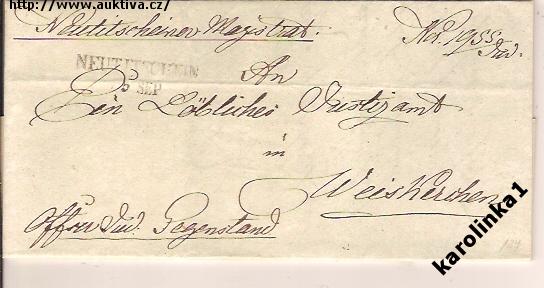 http://www.auktiva.cz/
Neutitscheiner Magistrat.
Nro. 1955
Jud.
NEUTITSCHEIN
SEP
An
Ein Löbliches Justizamt
in
Weiskirchen
Jud. Gegenstand
karolinka1